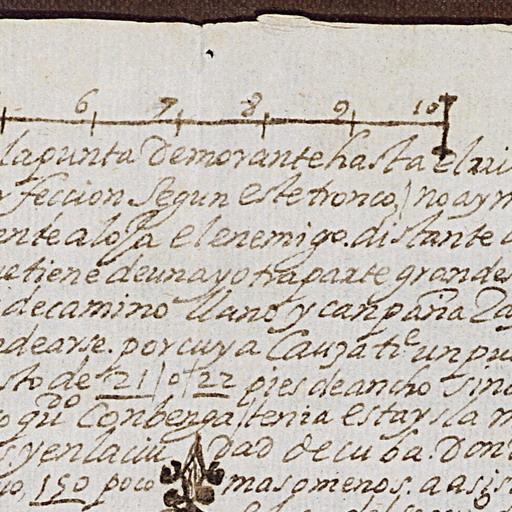 6 7 8 9 10
lapunta Demorante hasta el
feccion Segun este tronco, no ay
ente aloja el enemigo. distante
tiene deuna y otra parte grandes
de camino llano y canpaña
dearse. por cuya Cauza tie un
sto de 21 / o / 22 pies de ancho
qdo Conbenga tenia estar
y en la ciu dad de cuba. Don
150 poco mas o menos. a